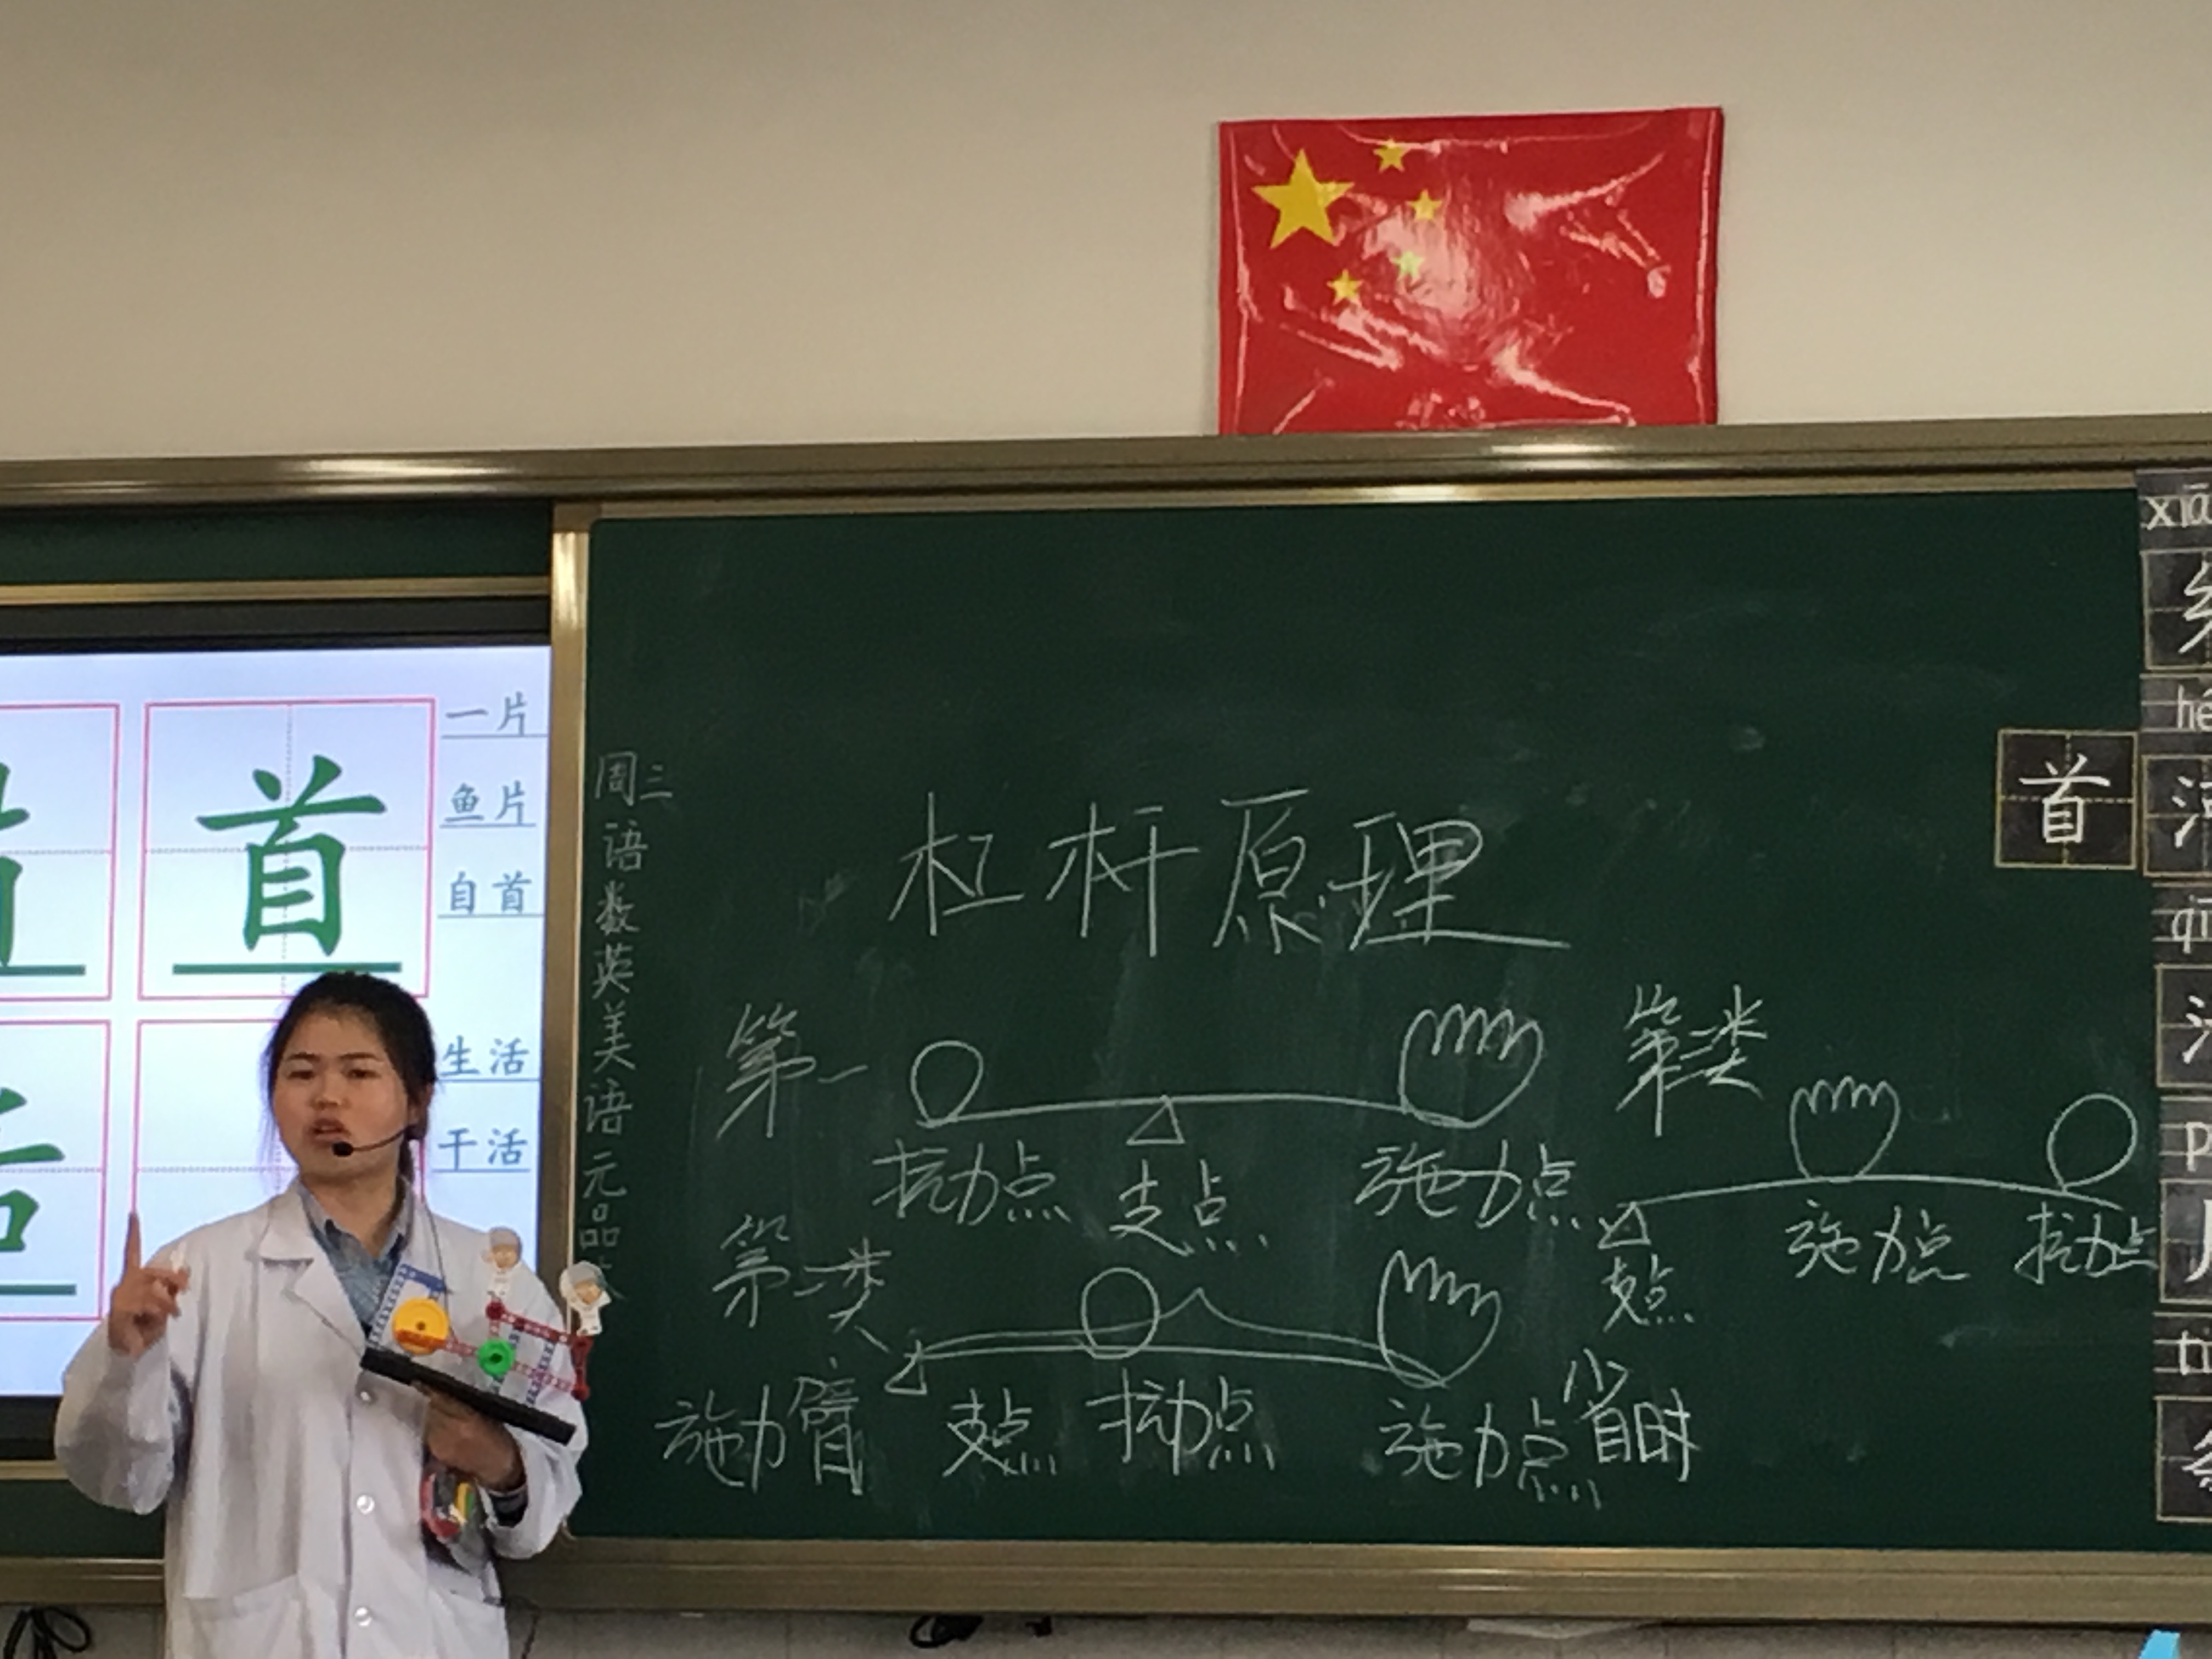 一片
首
鱼片
自首
生活
干活
周三
语
数
英
美
语
元
品
杠杆原理
第一
抗力点
支点
施力点
第二类
施力臂
支点
抗力点
施力点
省时
第三类
支点
施力点
抗力点
首
xiā
hé